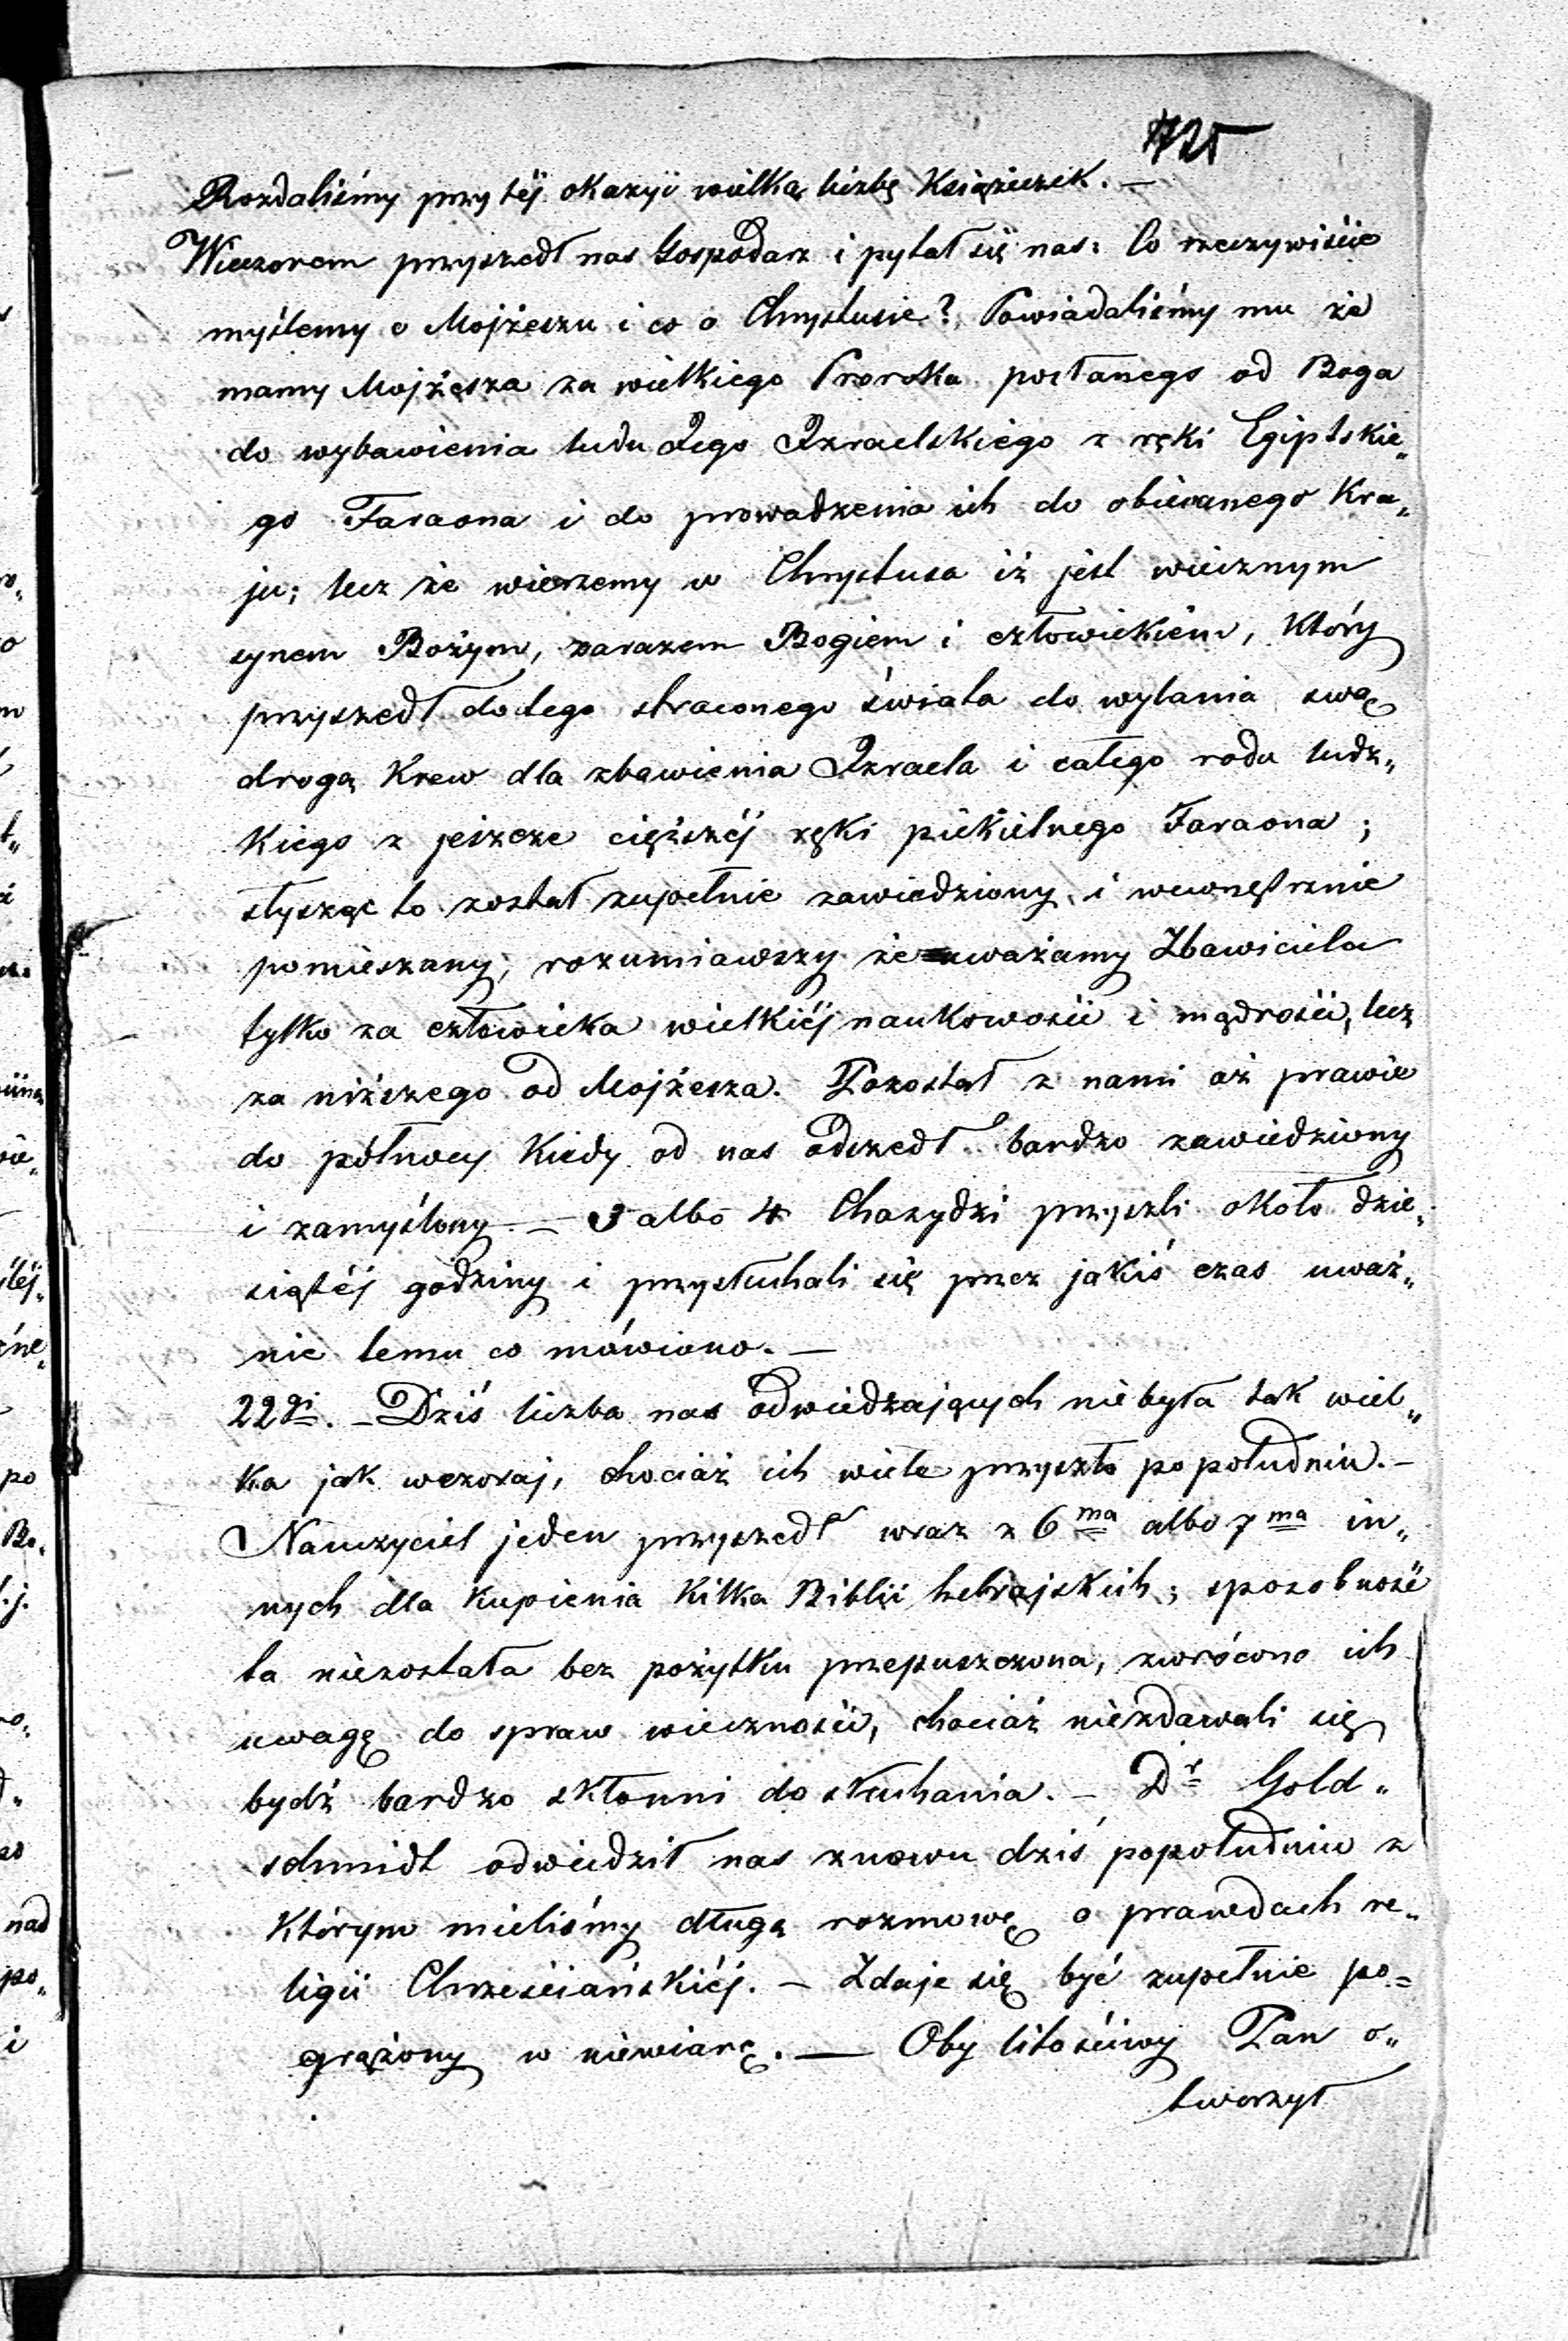 725
Rozdaliśmy przytéj okazyi wielką liczbę Książeczek. —
Wieczorem przyszedł nas Gospodarz i pytał się nas: Co rzeczywiście
myślemy o Mojżeszu i co o Chrystusie? Powiadaliśmy mu że
mamy Mojżesza za wielkiego Proroka posłanego od Boga
do wybawienia ludu Jego Izraelskiego z ręki Egiptskie„
go Faraona i do prowadzenia ich do obiecanego Kra„
ju; lecz że wierzemy w Chrystusa iż jest wiecznym
synem Bożym, zarazem Bogiem i człowiekiem, Który
przyszedł do tego straconego świata do wylania swą
drogą Krew dla zbawienia Izraela i całego rodu ludz„
Kiego z jeszcze cięższéj ręki piekielnego Faraona;
słysząc to został zupełnie zawiedziony, i wewnętrznie
pomieszany, rozumiawszy że uważamy Zbawiciela
tylko za człowieka wielkiéj naukowości i mądrości, lecz
za niższego od Mojżesza. Pozostał z nami aż prawie
do północy Kiedy od nas odszedł bardzo zawiedziony
i zamyślony. — 3 albo 4 Chazydzi przyszli około dzie„
siątéj godziny i przysłuchali się przez jakiś czas uważ„
nie temu co mówiono. —
22gi. — Dziś liczba nas odwiedzających niebyła tak wiel„
Ka jak wczoraj, chociaż ich wiele przyszło popołudniu. —
Nauczyciel jeden przyszedł wraz z 6ma albo 7ma in„
nych dla Kupienia Kilka Biblii hebrajskich; sposobność
ta niezostała bez pożytku przepuszczona, zwrócono ich
uwagę do spraw wieczności, chociaż niezdawali się
bydź bardzo skłonni do słuchania. — Dr Gold„
schmidt odwiedził nas znowu dziś popołudniu z
Którym mieliśmy długą rozmowę o prawdach re„
ligii Chrześciańskiéj. — Zdaje się być zupełnie po=
grążony w niewiarę. — Oby litościwy Pan o„
tworzył